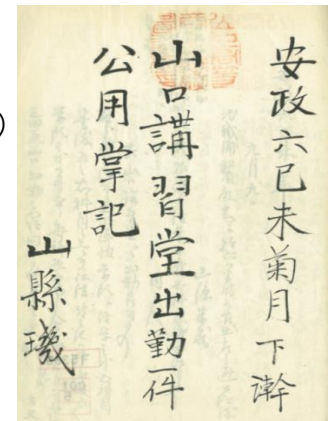 安政六己未菊月下澣
山口講習堂出勤一件
公用掌記
山縣璣